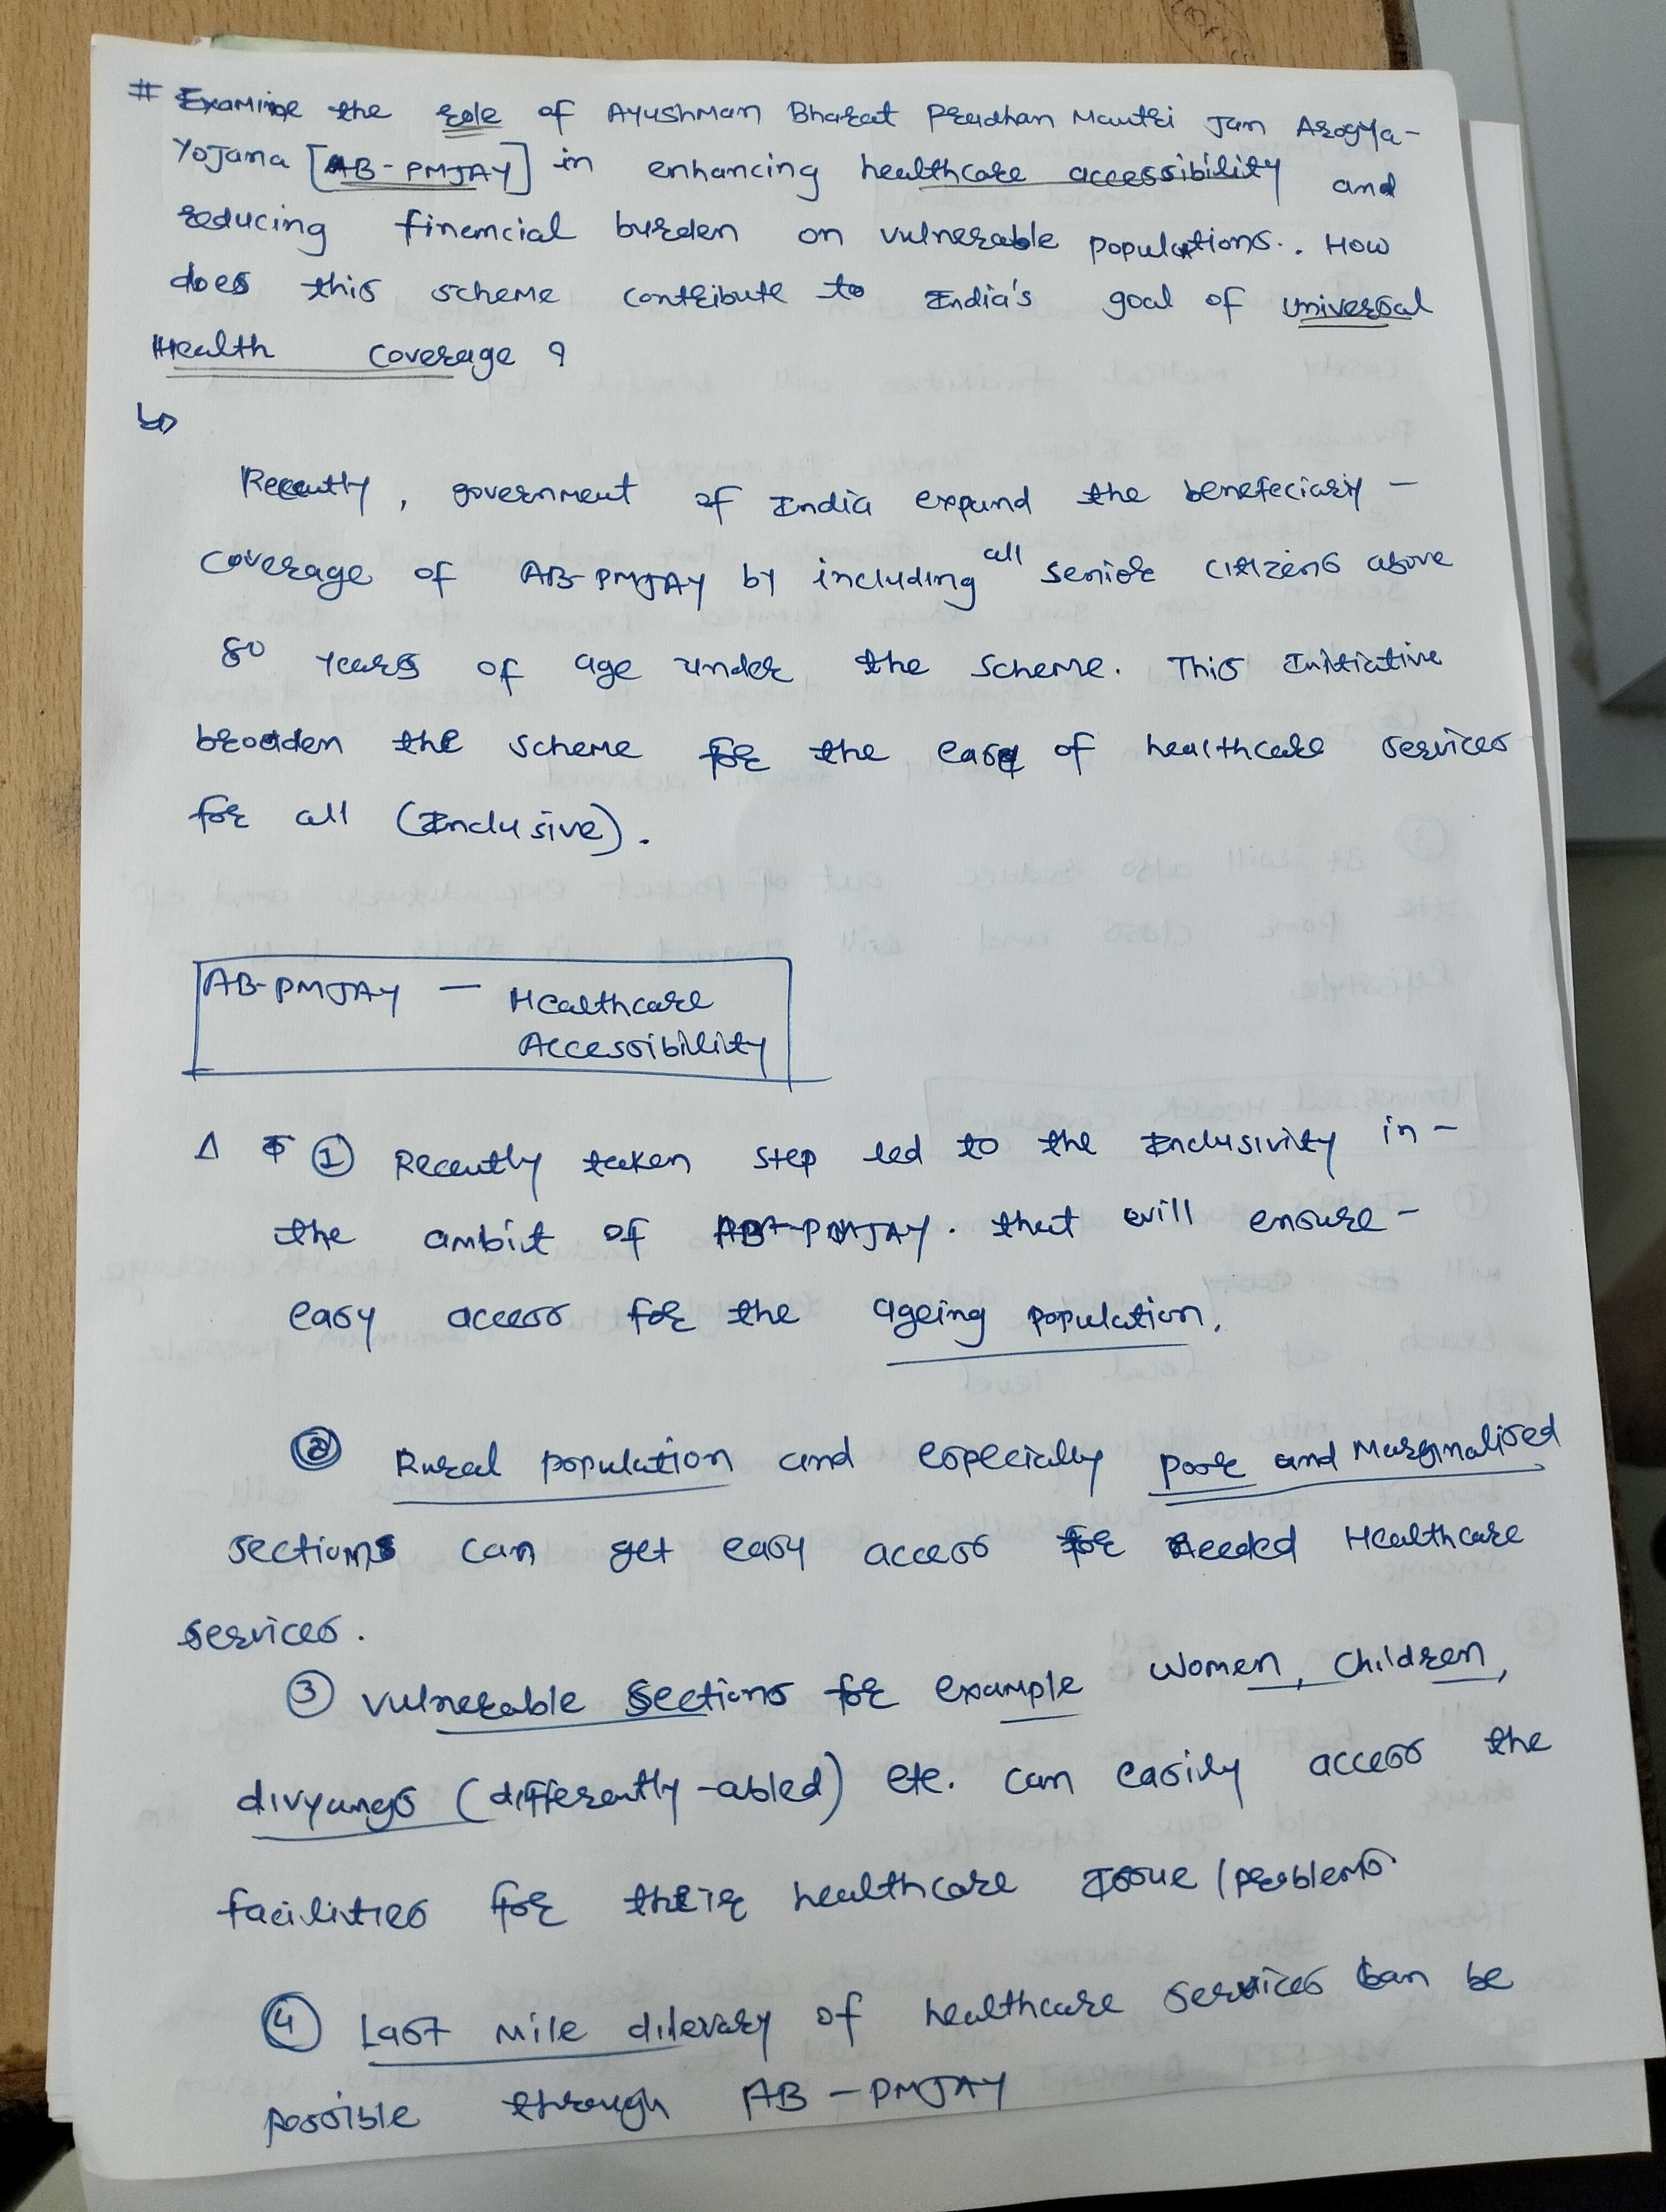 # Examine the role of Ayushman Bharat Pradhan Mantri Jan Arogya-
Yojana [AB-PMJAY] in enhancing healthcare accessibility and
reducing financial burden on vulnerable populations. How
does this scheme contribute to India's goal of universal
Health coverage ?
Recently, government of India expand the benefeciary -
coverage of AB-PMJAY by including all senior citizens above
80 years of age under the scheme. This Initiative
broaden the scheme for the ease of healthcare services
for all (Inclusive).
AB-PMJAY — Healthcare
Accessibility
① Recently taken step led to the Inclusivity in -
the ambit of AB-PMJAY. that will ensure -
easy access for the ageing population.
② Rural population and especially poor and Marginalised
sections can get easy access for needed Healthcare
services.
③ Vulnerable Sections for example Women, Children,
divyangs (differently-abled) etc. can easily access the
facilities for their healthcare Issue / problems
④ Last mile dilevary of healthcare services can be
possible through AB-PMJAY